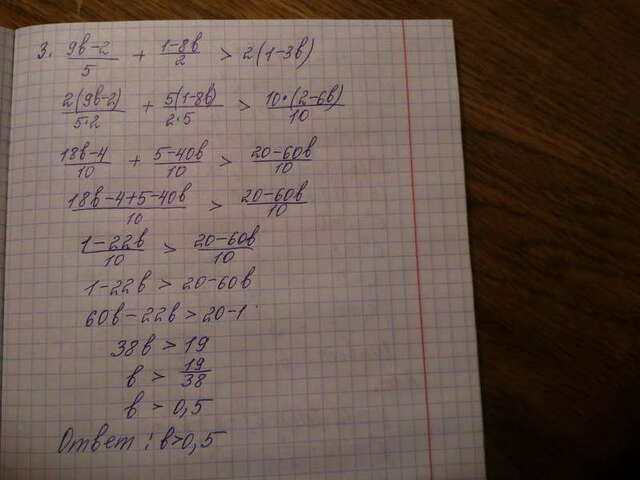 3. (9в-2)/5 + (1-8в)/2 > 2(1-3в)
2(9в-2)/(5*2) + 5(1-8в)/(2*5) > 10*(2-6в)/10
(18в-4)/10 + (5-40в)/10 > (20-60в)/10
(18в-4+5-40в)/10 > (20-60в)/10
(1-22в)/10 > (20-60в)/10
1-22в > 20-60в
60в-22в > 20-1
38в > 19
в > 19/38
в > 0,5
Ответ: в>0,5